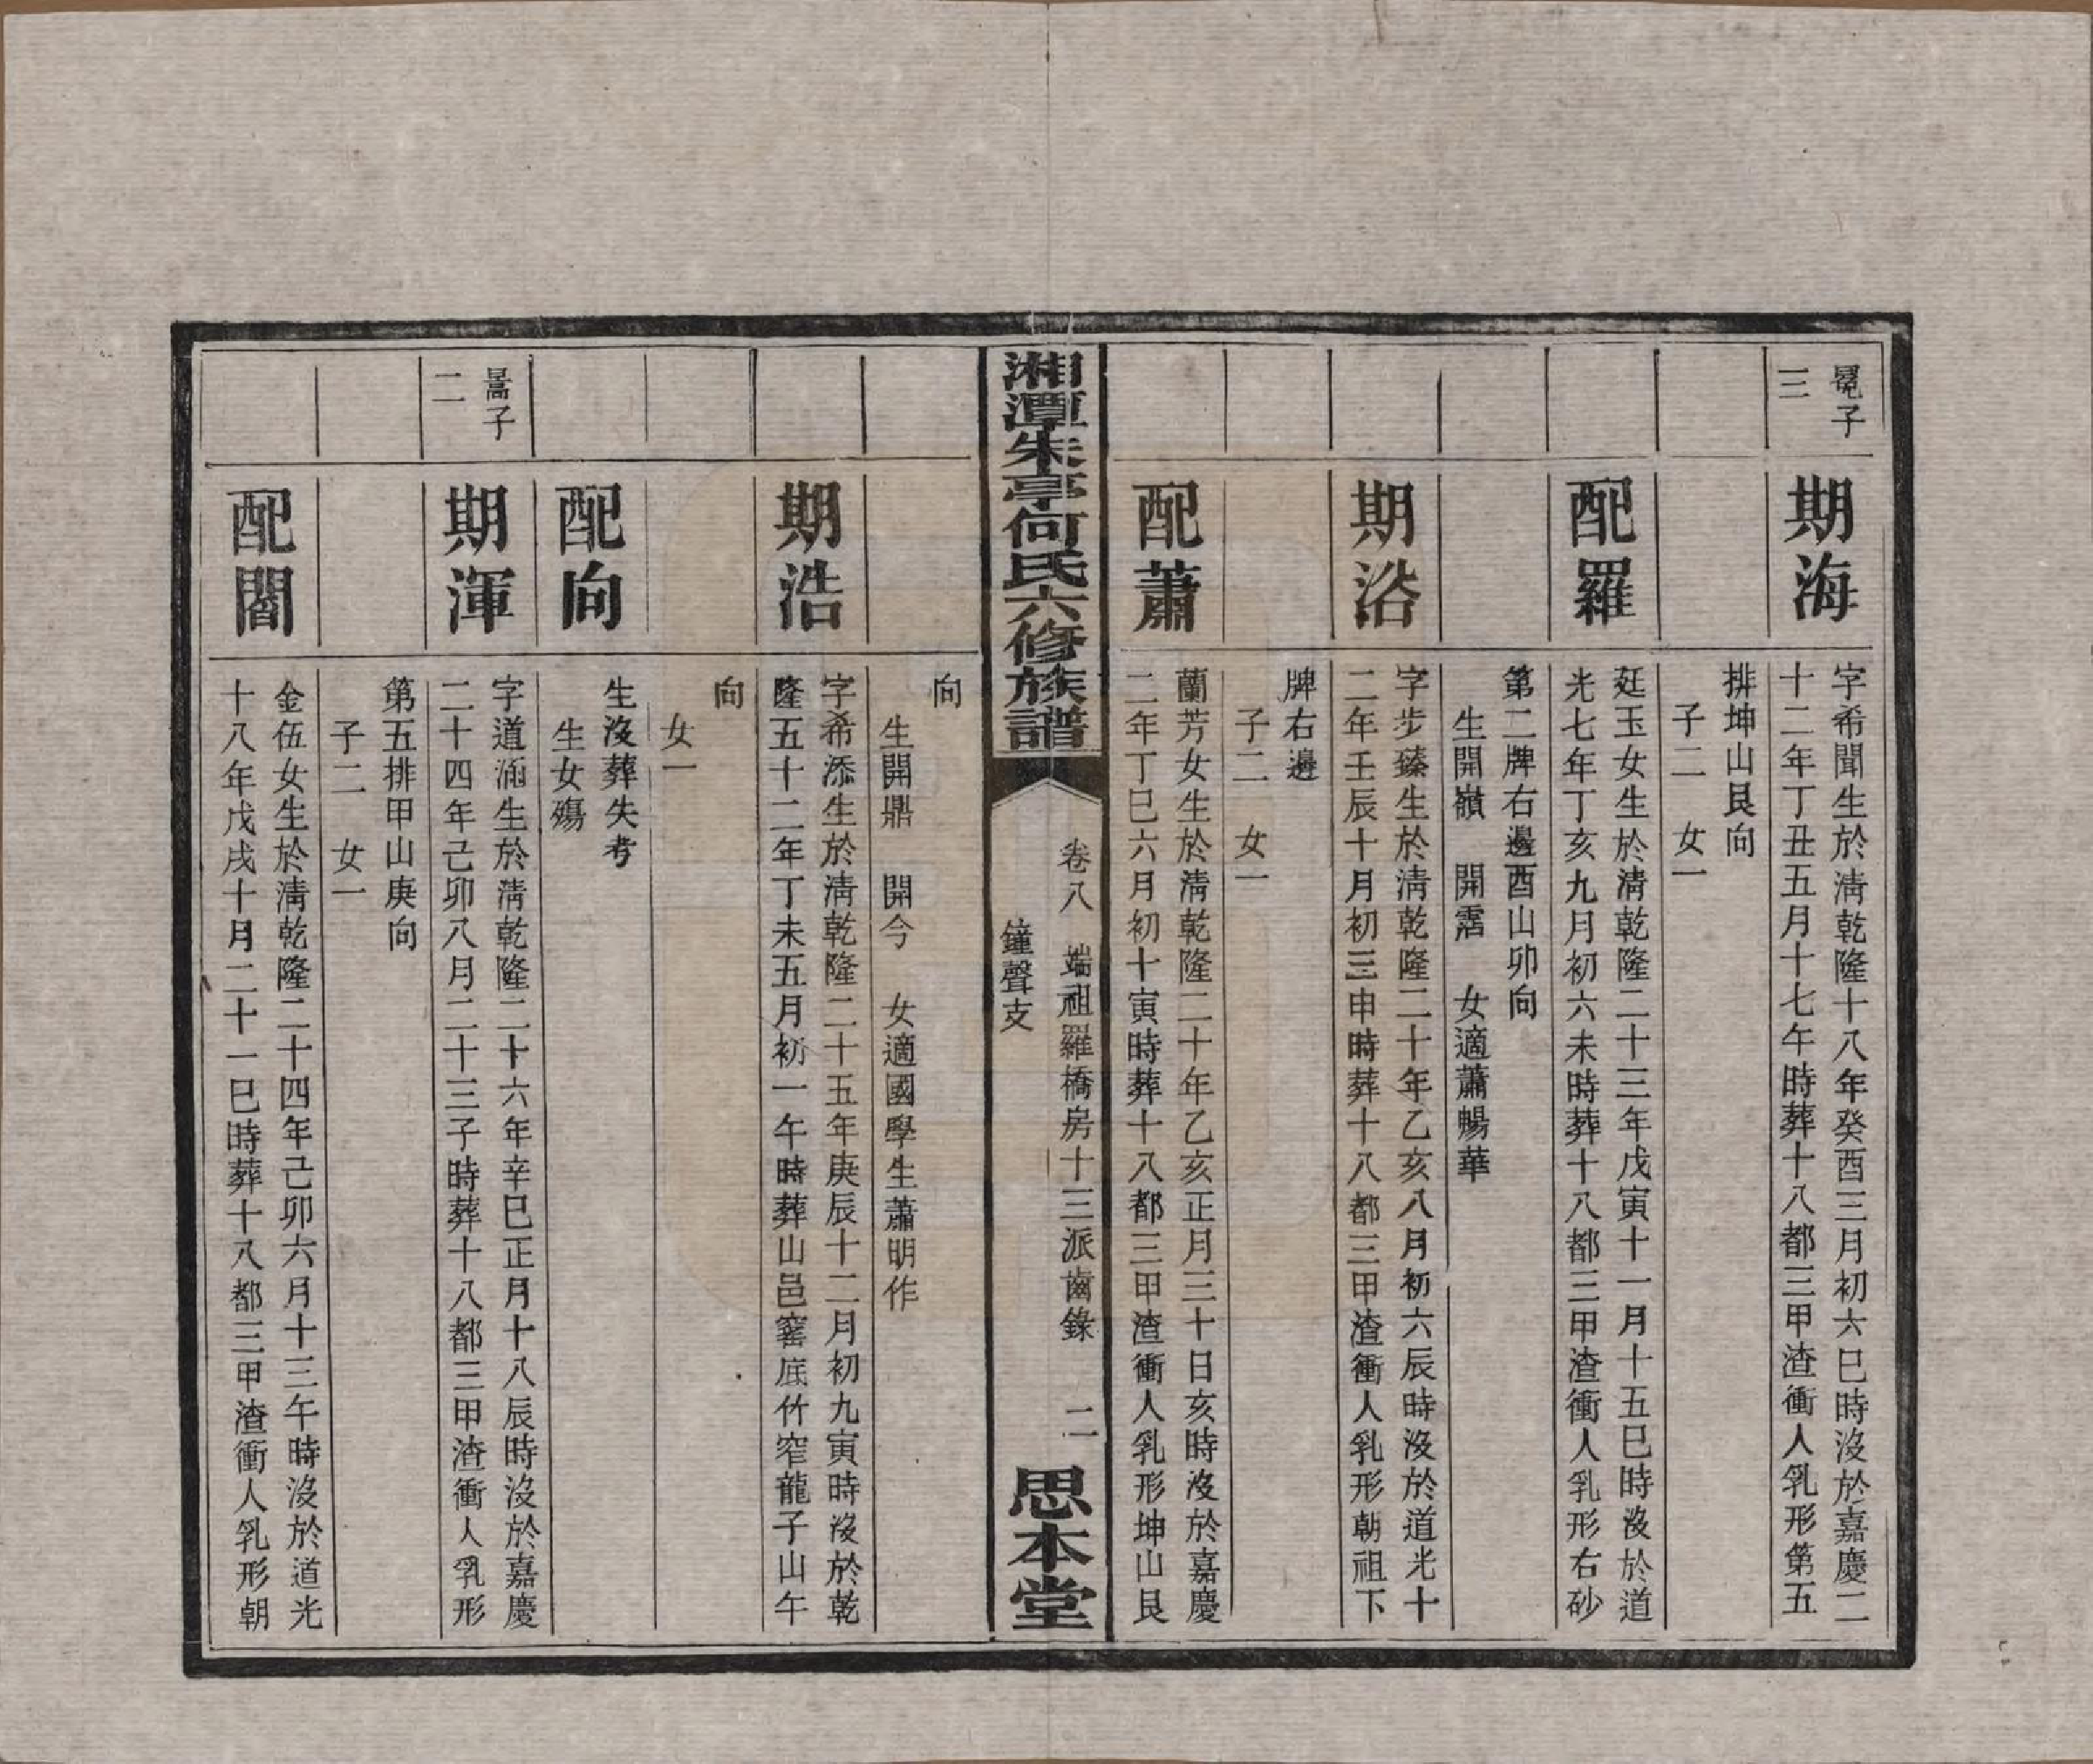 冕子
三
期海
字希聞生於清乾隆十八年癸酉三月初六巳時沒於嘉慶二
十二年丁丑五月十七午時葬十八都三甲渣衝人乳形第五
排坤山艮向
子二　女一
配羅
廷玉女生於清乾隆二十三年戊寅十一月十五巳時沒於道
光七年丁亥九月初六未時葬十八都三甲渣衝人乳形右砂
第二牌右邊酉山卯向
生開嶺　開霑　女適蕭暢華
期沿
字步臻生於清乾隆二十年乙亥八月初六辰時沒於道光十
二年壬辰十月初三申時葬十八都三甲渣衝人乳形朝祖下
牌右邊
子二　女一
配蕭
蘭芳女生於清乾隆二十年乙亥正月三十日亥時沒於嘉慶
二年丁巳六月初十寅時葬十八都三甲渣衝人乳形坤山艮
湘潭朱亭何氏六修族譜
卷八　端祖羅橋房十三派齒錄　二
鐘聲支
思本堂
向
生開鼎　開今　女適國學生蕭明作
期浩
字希添生於清乾隆二十五年庚辰十二月初九寅時沒於乾
隆五十二年丁未五月初一午時葬山邑窰底竹窄龍子山午
向
女一
配向
生沒葬失考
生女殤
暠子
二
期渾
字道涵生於清乾隆二十六年辛巳正月十八辰時沒於嘉慶
二十四年己卯八月二十三子時葬十八都三甲渣衝人乳形
第五排甲山庚向
子二　女一
配閻
金伍女生於清乾隆二十四年己卯六月十三午時沒於道光
十八年戊戌十月二十一巳時葬十八都三甲渣衝人乳形朝